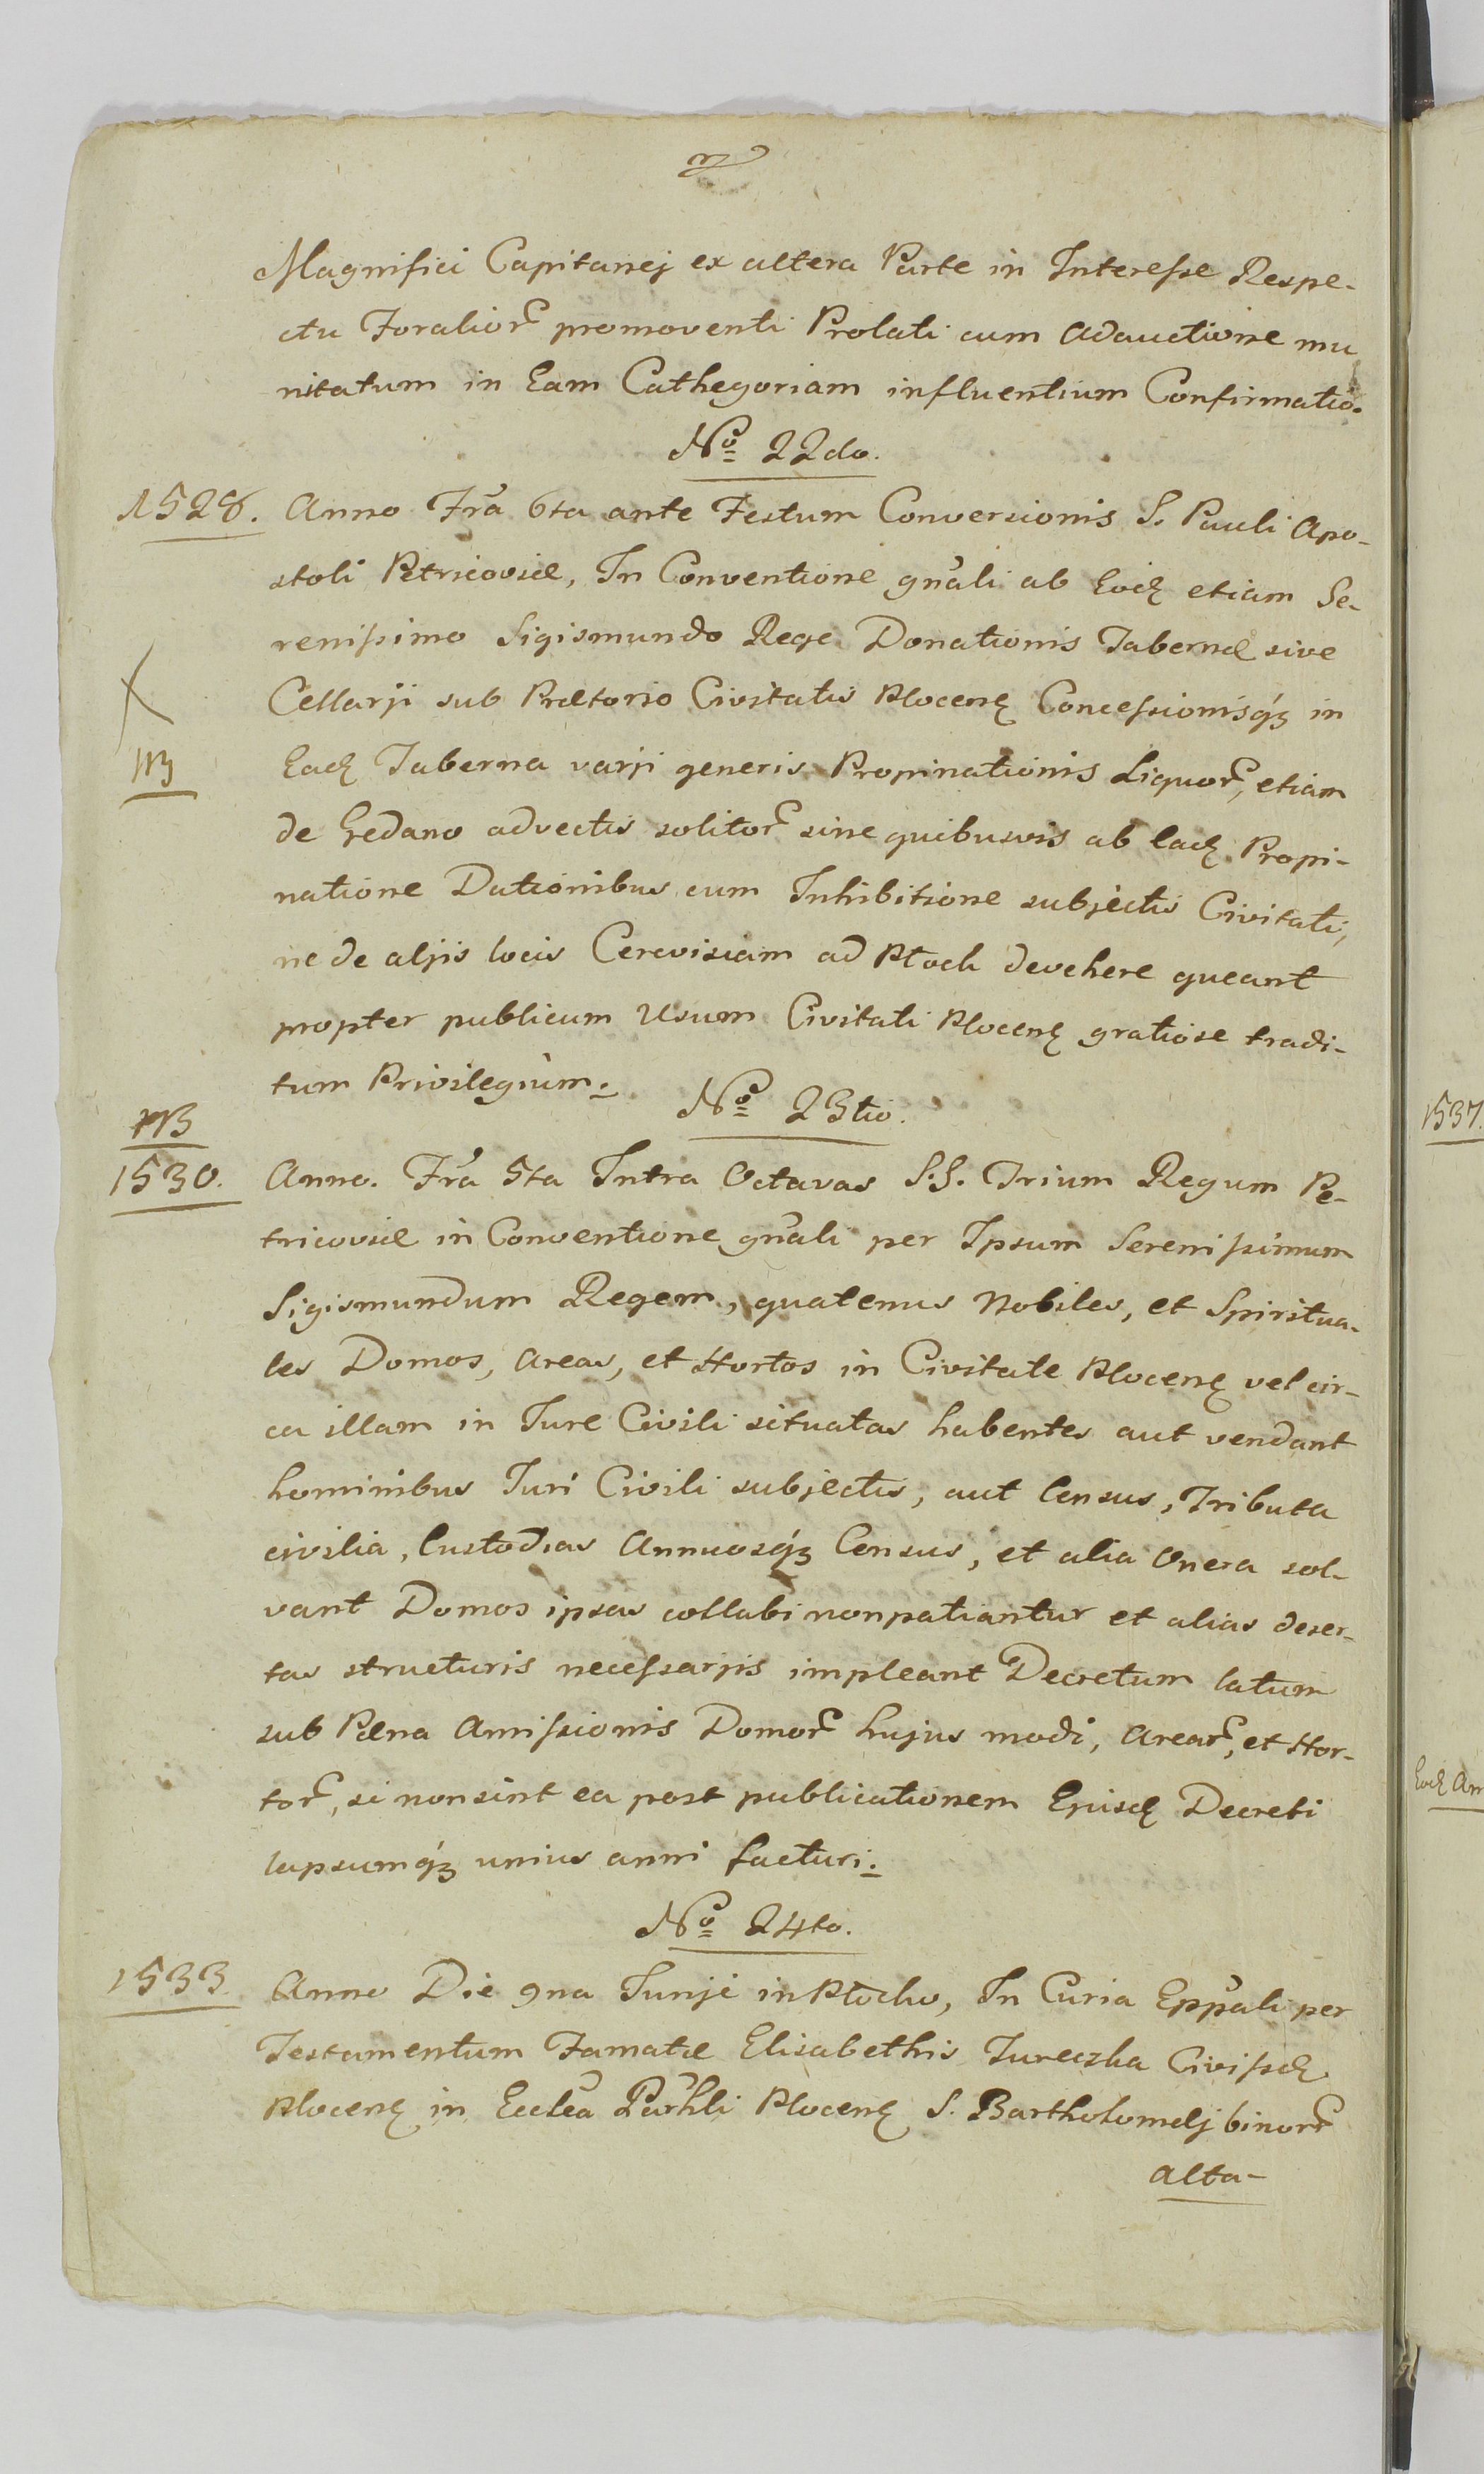 Magnifici Capitanej ex altera Parte in Interesse Respe-
ctu Foralior̃ promoventi Prolati cum Adauctione mu
nitatum in Eam Cathegoriam influentium Confirmatio.
Nº 22do.
1528. Anno Fr̃a 6ta ante Festum Conversionis S. Pauli Apo-
stoli Petricoviæ, In Conventione gñali ab Eodȩ etiam Se-
renissimo Sigismundo Rege Donationis Tabernæ sive
Cellarji sub Prætorio Civitatis Plocenȩ Concessionisq́ȝ in
NB Eadȩ Taberna varji generis Propinationis Liquor̃, etiam
de Gedano advectis solitor̃ sine quibusvis ab eadȩ Propi-
natione Dationibus cum Inhibitione subjectis Civitati,
ne de aljis locis Cerevisiam ad Płock devehere queant
propter publicum Usum Civitati Plocenȩ gratiose tradi-
tum Privilegium.
Nº 23tio.
NB
1530. Anno. Fr̃a 5ta Intra Octavas S.S. Trium Regum Pe-
tricoviæ in Conventione gñali per Ipsum Serenissimum
Sigismundum Regem, quatenus Nobiles, et Spiritua-
les Domos, Areas, et Hortos in Civitate Plocenȩ vel cir-
ca illam in Jure Civili situatas habentes aut vendant
hominibus Juri Civili subjectis, aut Census, Tributa
civilia, Custodias Annuosq́ȝ Census, et alia Onera sol-
vant Domos ipsas collabi non patiantur et alias deser-
tas structuris necessarjis impleant Decretum latum
sub Pæna Amissionis Domor̃ hujus modi, Arear̃, et Hor-
tor̃, si non sint ea post publicationem Ejusdȩ Decreti
lapsumq́ȝ unius anni facturi.
Nº 24to.
1533. Anno Die 9na Junji in Płocko, In Curia Epp̃ali per
Testamentum Famatæ Elisabethis Jureczka Civissȩ
Plocenȩ in Eccl̃ea Par̃hli Plocenȩ S. Bartholomæj binor̃
alta-
1537.
Eodȩ An